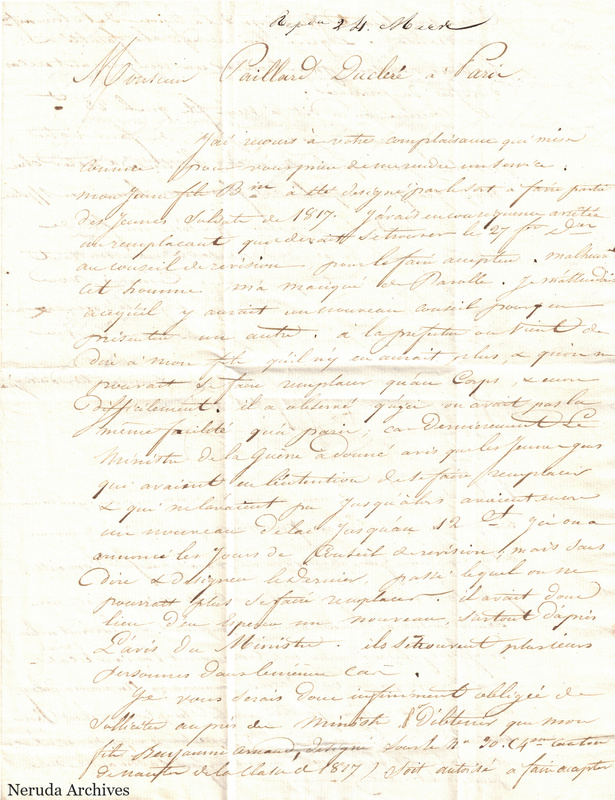 Repdu 24. Mars
Monsieur Paillard Ducléré à Paris
J'ai recours à votre complaisance qui m'est
connue pour vous prier de me rendre un service.
mon Jeune fils Bin a été designé par le sort a faire partie
des Jeunes Soldats de 1817. J'avais en consequence arrêté
un remplaçant qui devait se trouver le 27 Der
au conseil de revision pour le faire accepter. malheur
cet homme m'a manqué de Parolle. Je m'attendais
a ce qu'il y aurait un nouveau conseil pour en
présenter un autre. à la prefecture on vient de
dire à mon fils qu'il n'y en aurait plus, & qu'on ne
pouvait se faire remplacer qu'au Corps, & encore
difficilement. il a observé qu'ici on avait pas la
même facilité qu'à paris, car dernierement Le
Ministre de la Guerre a donné avis que les Jeunes gens
qui avaient eu l'intention de se faire remplacer
& qui ne l'avaient pu Jusqu'alors avaient encore
un nouveau delai Jusqu'au 12 ct Ici on a
annoncé les Jours de Conseil de revision, mais sans
dire & designer le dernier, passé lequel on ne
pourrait plus se faire remplacer. il avait donc
lieu d'en esperer un nouveau, surtout d'après
L'avis du Ministre. ils se trouvent plusieurs
personnes dans le même cas.
Je vous serais donc infiniment obligé de
Solliciter auprès du Ministre & d'obtenir que mon
fils Benjamin arnaud, designé sous le No 30 (4me canton
de nantes de la Classe de 1817) soit autorisé a faire accepter
Neruda Archives